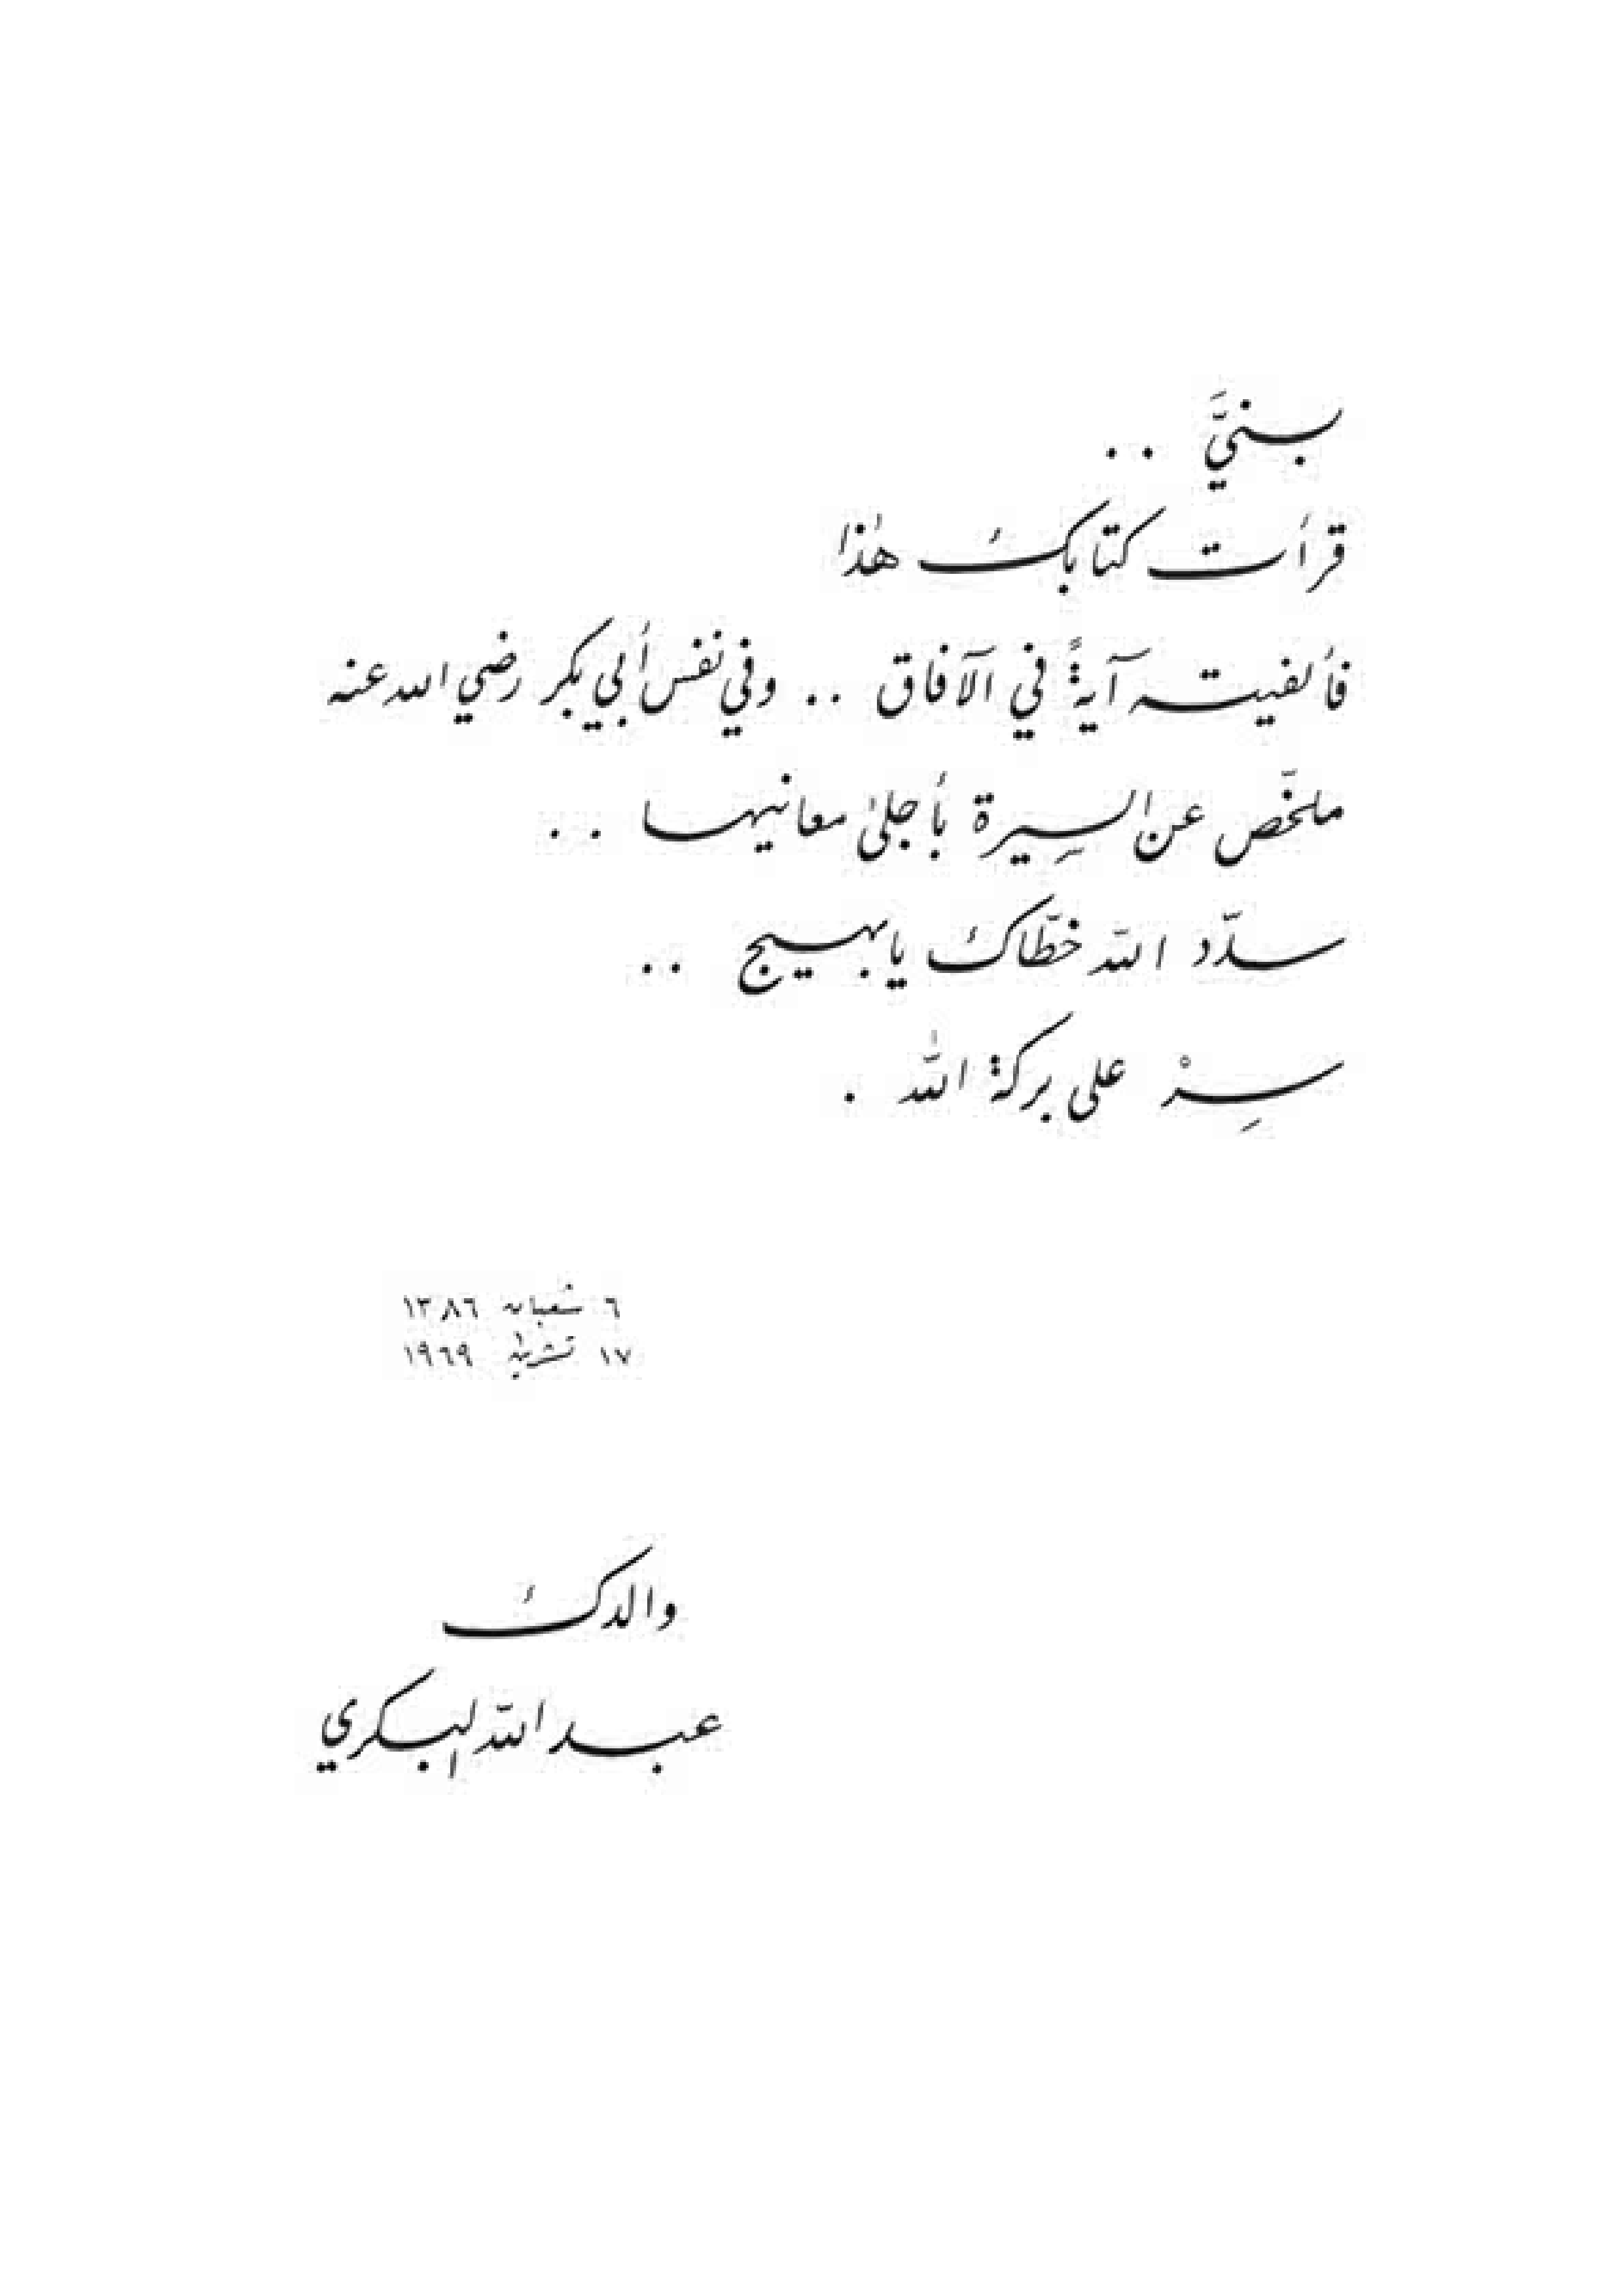 بنيَّ ..
قرأت كتابك هٰذا
فألفيته آيةً في الآفاق .. وفي نفس أبي بكر رضي الله عنه
ملخّص عن السِيرة بأجلىٰ معانيها ..
سدّد الله خطّاك يا بهيج ..
سِرْ على بركة الله .
٦ شعبان ١٣٨٦
١٧ تشرين ١٩٦٩
والدك
عبد الله البكري